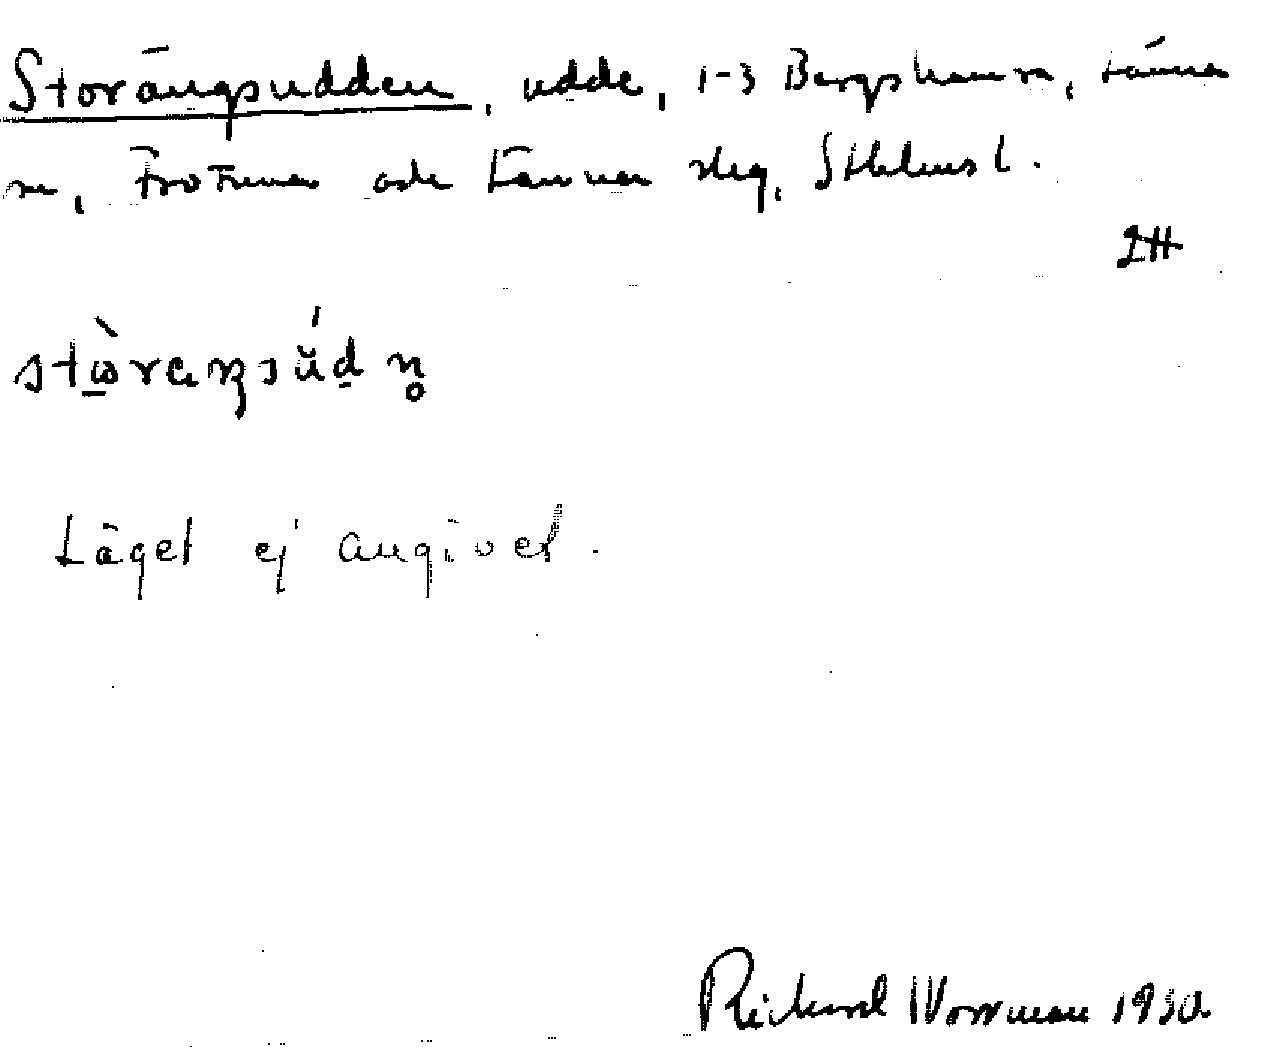 Storängsudden, udde, 1-3 Bergshamra, Länna
sn, Frötuna och Länna slg, Sthlms l.
stὼraŋsúdn̥
Läget ej angivet.
Rickard Worrman 1930.